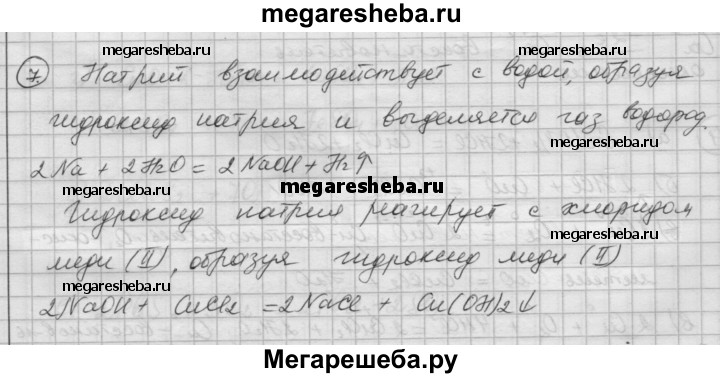 megaresheba.ru
megaresheba.ru megaresheba.ru
7. Натрий взаимодействует с водой, образуя
гидроксид натрия и выделяется газ водород.
megaresheba.ru megaresheba.ru
2Na + 2H2O = 2NaOH + H2↑
megaresheba.ru
Гидроксид натрия реагирует с хлоридом
меди (II), образуя гидроксид меди (II)
megaresheba.ru megaresheba.ru
2NaOH + CuCl2 = 2NaCl + Cu(OH)2↓
Мегарешеба.ру